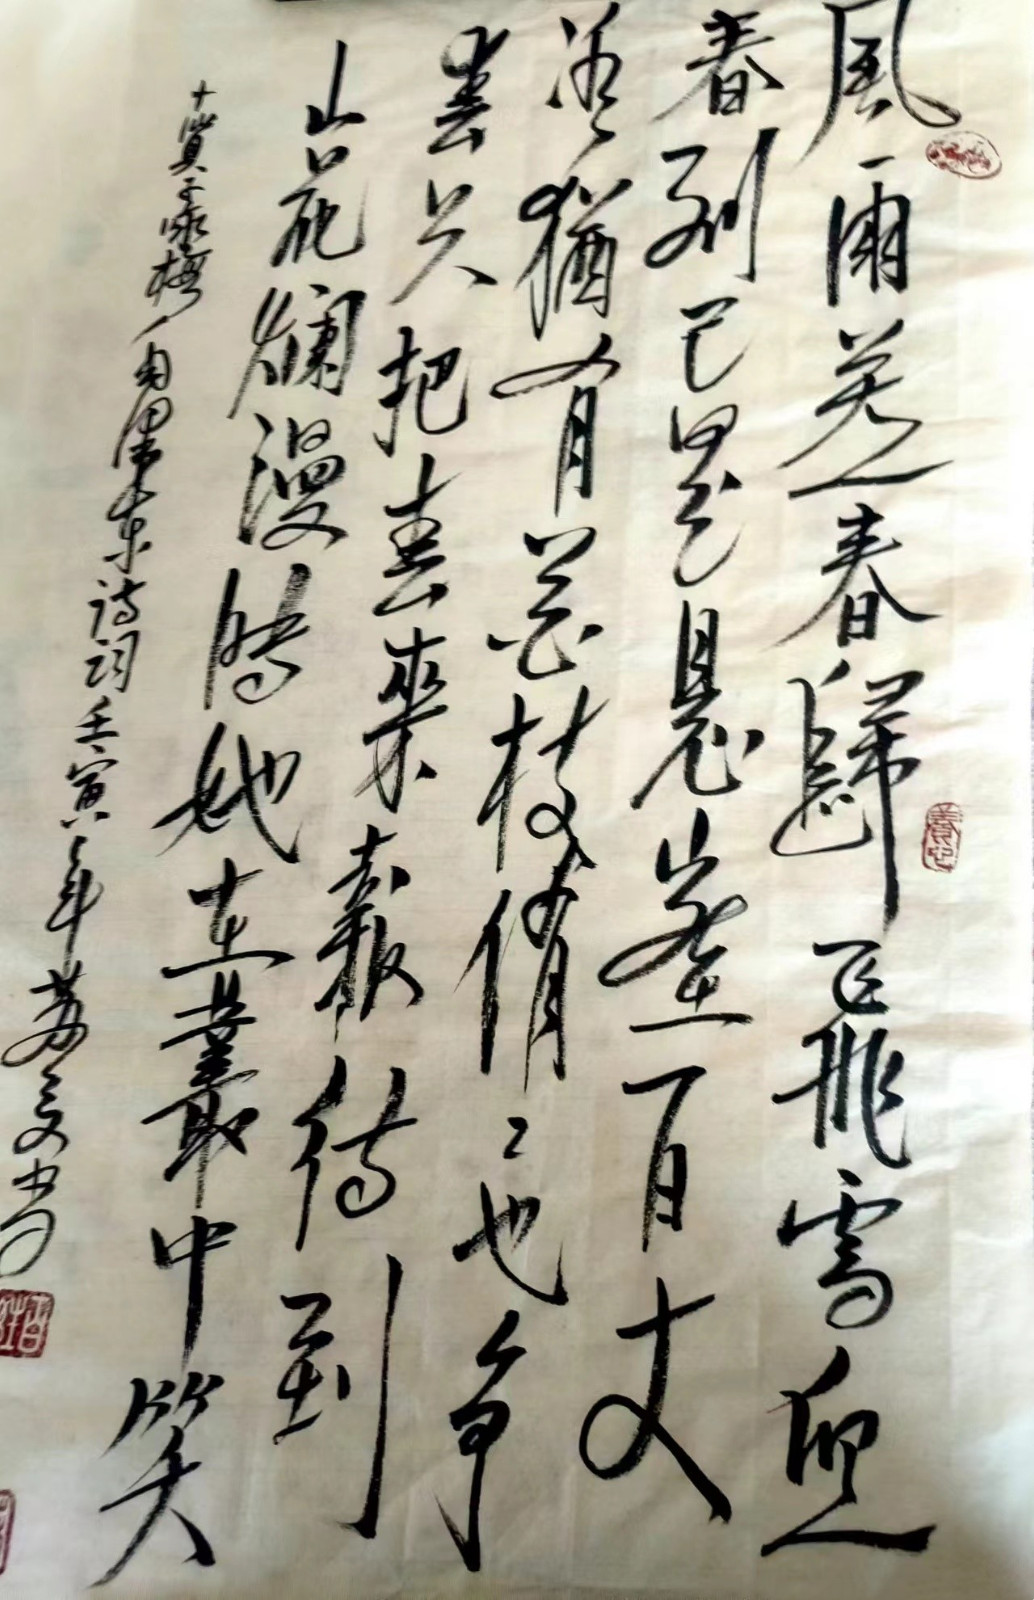 風雨送春歸飛雪迎
春到已是懸崖百丈
冰猶有花枝俏〻也争
春只把春來報待到
山花爛漫時她在叢中笑
卜算子咏梅 毛澤東詩詞 壬寅年